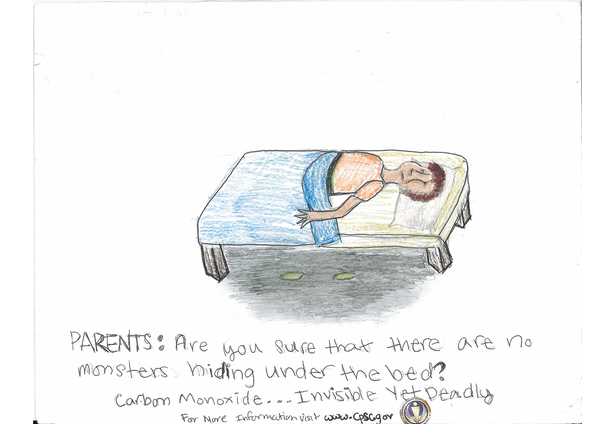 PARENTS: Are you sure that there are no
monsters hiding under the bed?
Carbon Monoxide... Invisible Yet Deadly
For More Information visit www.cpsc.gov